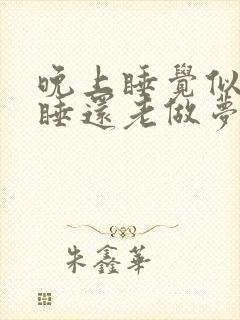 晚上睡覺似
睡還老做夢
朱鑫華